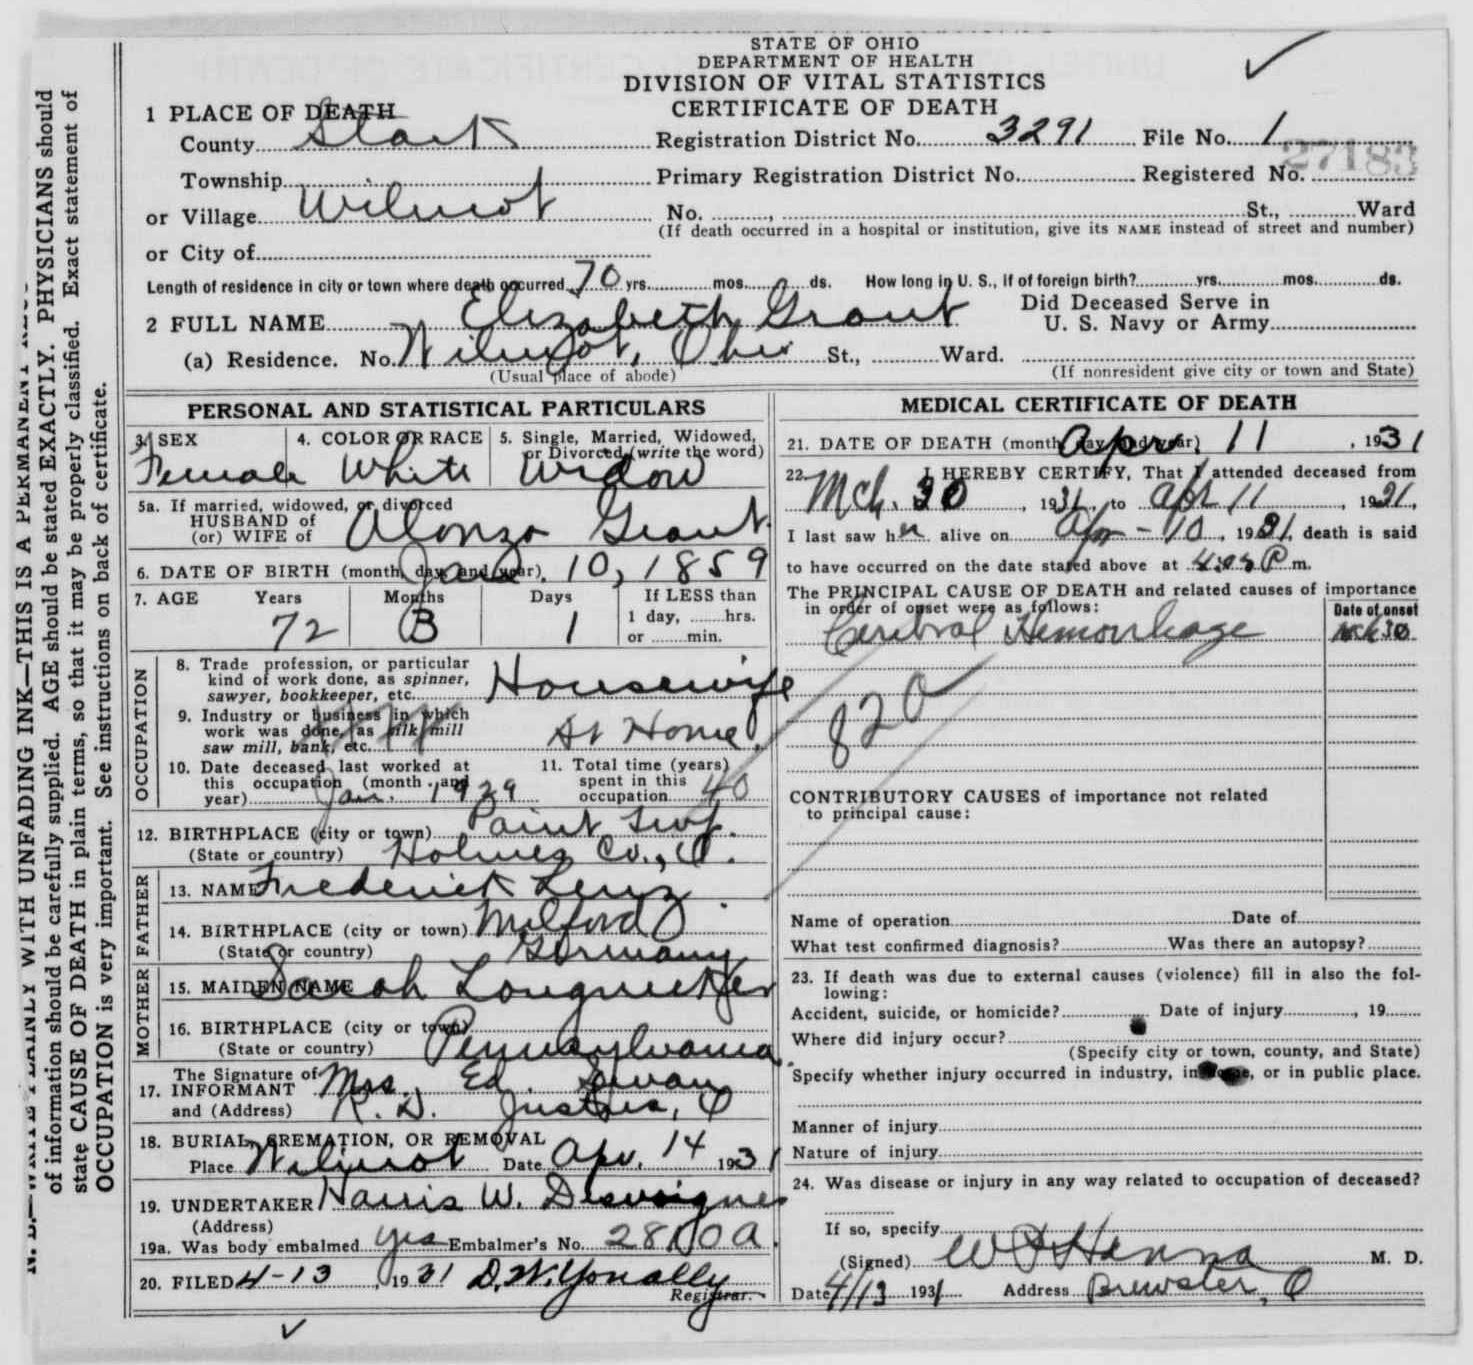 STATE OF OHIO
DEPARTMENT OF HEALTH
DIVISION OF VITAL STATISTICS
CERTIFICATE OF DEATH
1 PLACE OF DEATH
County Stark Registration District No. 3291 File No. 1
27183
Township Primary Registration District No. Registered No.
or Village Wilmot No. , St., Ward
(If death occurred in a hospital or institution, give its NAME instead of street and number)
or City of
Length of residence in city or town where death occurred 70 yrs. mos. ds. How long in U. S., if of foreign birth? yrs. mos. ds.
2 FULL NAME Elizabeth Grant Did Deceased Serve in
U. S. Navy or Army
(a) Residence. No. Wilmot, Ohio St., Ward.
(Usual place of abode) (If nonresident give city or town and State)
PERSONAL AND STATISTICAL PARTICULARS
3. SEX 4. COLOR OR RACE 5. Single, Married, Widowed,
or Divorced (write the word)
Female White Widow
5a. If married, widowed, or divorced
HUSBAND of
(or) WIFE of Alonzo Grant
6. DATE OF BIRTH (month, day, and year). Jan. 10, 1859
7. AGE Years Months Days If LESS than
1 day, hrs.
or min.
72 3 1
OCCUPATION
8. Trade profession, or particular
kind of work done, as spinner,
sawyer, bookkeeper, etc. Housewife
9. Industry or business in which
work was done, as silk mill
saw mill, bank, etc. At Home
10. Date deceased last worked at
this occupation (month and
year) Jan. 1929
11. Total time (years)
spent in this
occupation 40
12. BIRTHPLACE (city or town) Paint Twp.
(State or country) Holmes Co., O.
FATHER
13. NAME Frederick
14. BIRTHPLACE (city or town) Milford
(State or country) Germany
MOTHER
15. MAIDEN NAME Sarah
16. BIRTHPLACE (city or town)
(State or country) Pennsylvania
17. The Signature of
INFORMANT Mrs. Ed.
and (Address) R. D. Justus, O
18. BURIAL, CREMATION, OR REMOVAL
Place Wilmot Date Apr. 14 1931
19. UNDERTAKER Harris W.
(Address)
19a. Was body embalmed yes Embalmer's No. 2800A.
20. FILED 4-13, 1931 D. W. Yonally
Registrar.
MEDICAL CERTIFICATE OF DEATH
21. DATE OF DEATH (month, day, and year) Apr. 11, 1931
22. I HEREBY CERTIFY, That I attended deceased from
Mch. 30, 1931 to Apr 11, 1931,
I last saw her alive on Apr-10, 1931, death is said
to have occurred on the date stated above at P. m.
The PRINCIPAL CAUSE OF DEATH and related causes of importance
in order of onset were as follows:
Date of onset
Cerebral Hemorrhage Mch 30
82a
CONTRIBUTORY CAUSES of importance not related
to principal cause:
Name of operation Date of
What test confirmed diagnosis? Was there an autopsy?
23. If death was due to external causes (violence) fill in also the fol-
lowing:
Accident, suicide, or homicide? Date of injury , 19
Where did injury occur?
(Specify city or town, county, and State)
Specify whether injury occurred in industry, in home, or in public place.
Manner of injury
Nature of injury
24. Was disease or injury in any way related to occupation of deceased?
If so, specify
(Signed) Hanna M. D.
Date 4/13 1931 Address Brewster, O
N. B.—WRITE PLAINLY WITH UNFADING INK—THIS IS A PERMANENT
of information should be carefully supplied. AGE should be stated EXACTLY. PHYSICIANS should
state CAUSE OF DEATH in plain terms, so that it may be properly classified. Exact statement of
OCCUPATION is very important. See instructions on back of certificate.